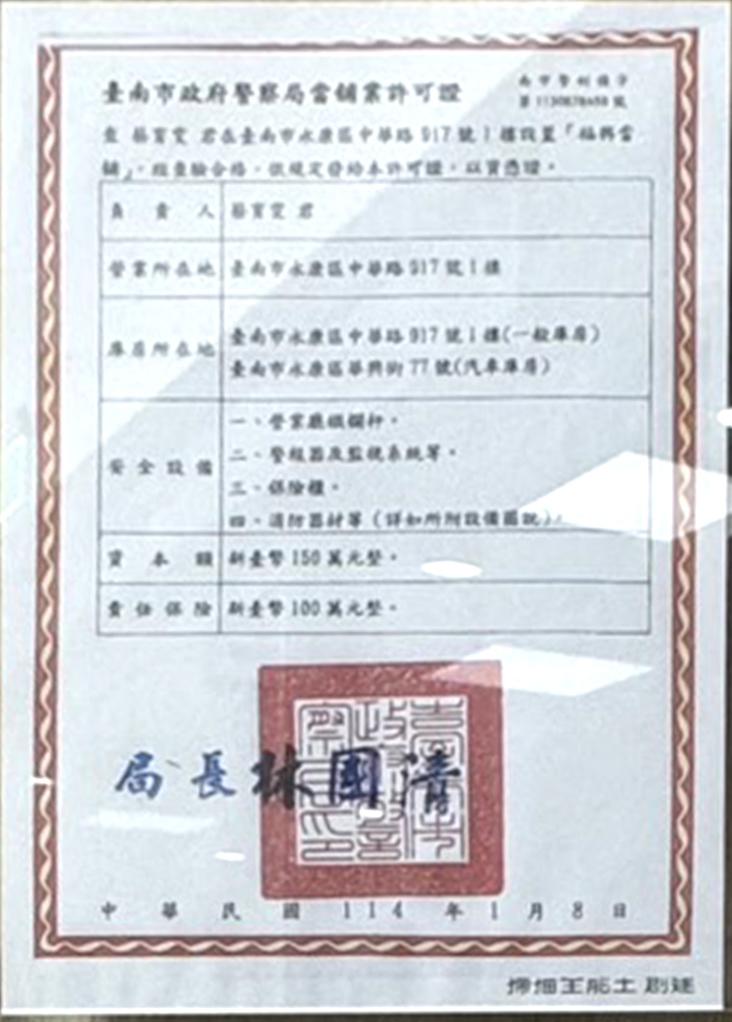 臺南市政府警察局當舖業許可證
南市警刑偵字
第 1130828458 號
查 蔡宥雯 君在臺南市永康區中華路 917 號 1 樓設置「福興當
舖」，經查驗合格，依規定發給本許可證，以資憑證。
負責人 蔡宥雯 君
營業所在地 臺南市永康區中華路 917 號 1 樓
庫房所在地 臺南市永康區中華路 917 號 1 樓(一般庫房)
臺南市永康區華興街 77 號(汽車庫房)
安全設備 一、營業廳鐵欄杆。
二、警報器及監視系統等。
三、保險櫃。
四、消防器材等（詳如所附設備圖說）。
資本額 新臺幣 150 萬元整。
責任保險 新臺幣 100 萬元整。
局長 林國清
中華民國 114 年 1 月 8 日